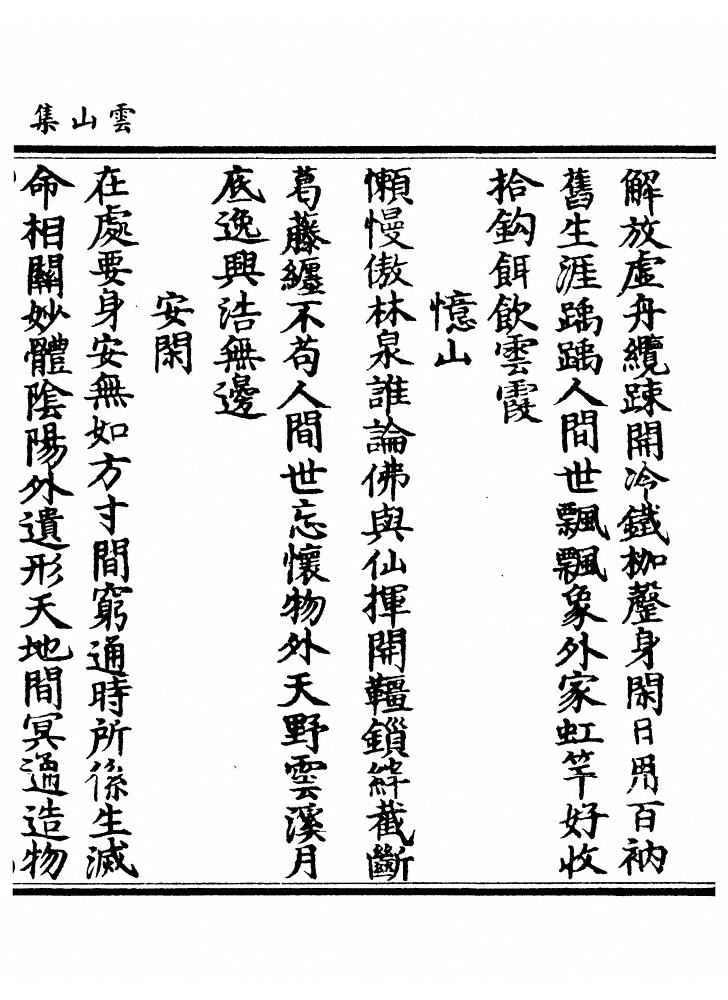 雲山集
解放虛舟纜踈開冷鐵枷蹙身閑日用百衲
舊生涯踽踽人間世飄飄象外家虹竿好收
拾鈎餌飲雲霞
憶山
懶慢傲林泉誰論佛與仙揮開韁鎖絆截斷
葛藤纏不苟人間世忘懷物外天野雲溪月
底逸興浩無邊
安閑
在處要身安無如方寸間窮通時所係生滅
命相關妙體隂陽外遺形天地間冥通造物